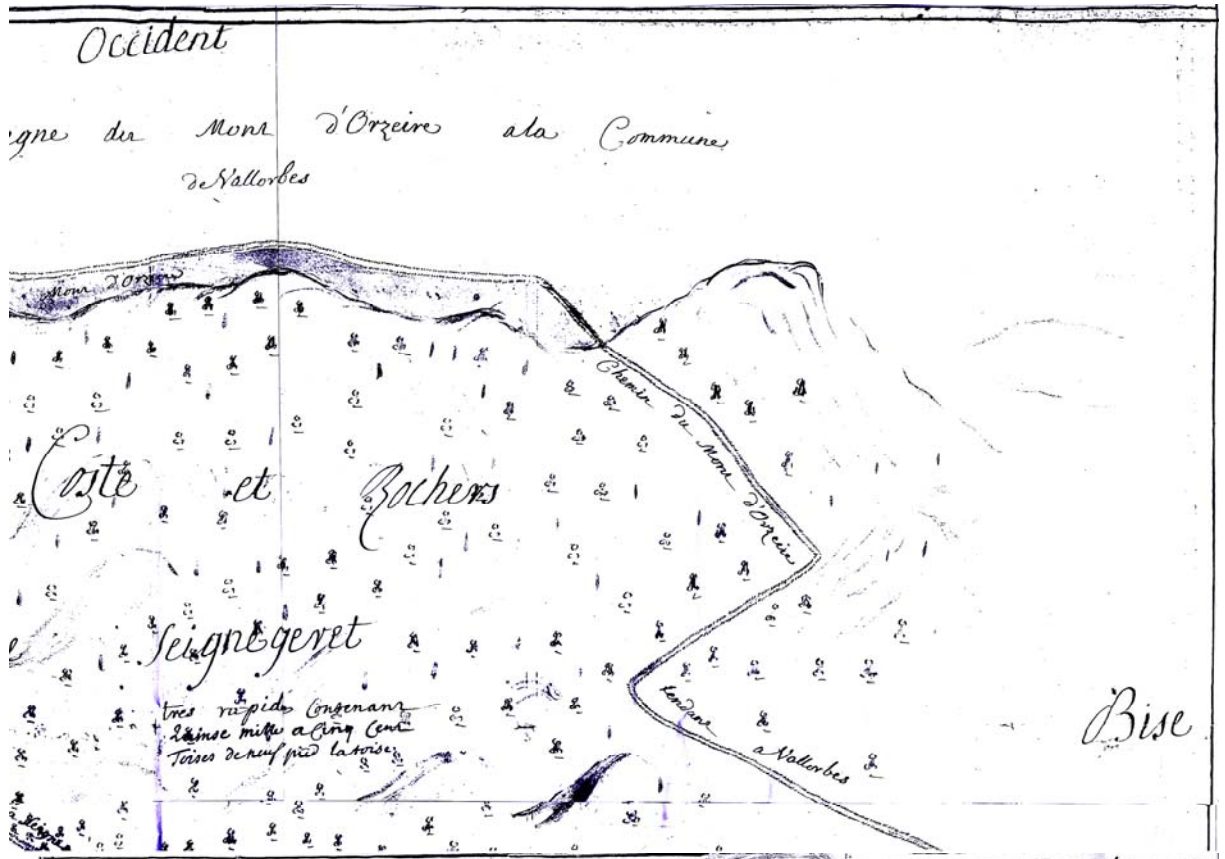 Occident
egne du Mont d'Orzeire a la Commune
de Vallorbes
Mont d'Orzeire
Chemin du Mont d'Orzeire
Coste et Rochers
Seignegeret
tres rapides Contenant
Quinse mille a Cinq Cent
Toises de neuf pied la toise
tendant a Vallorbes
Bise